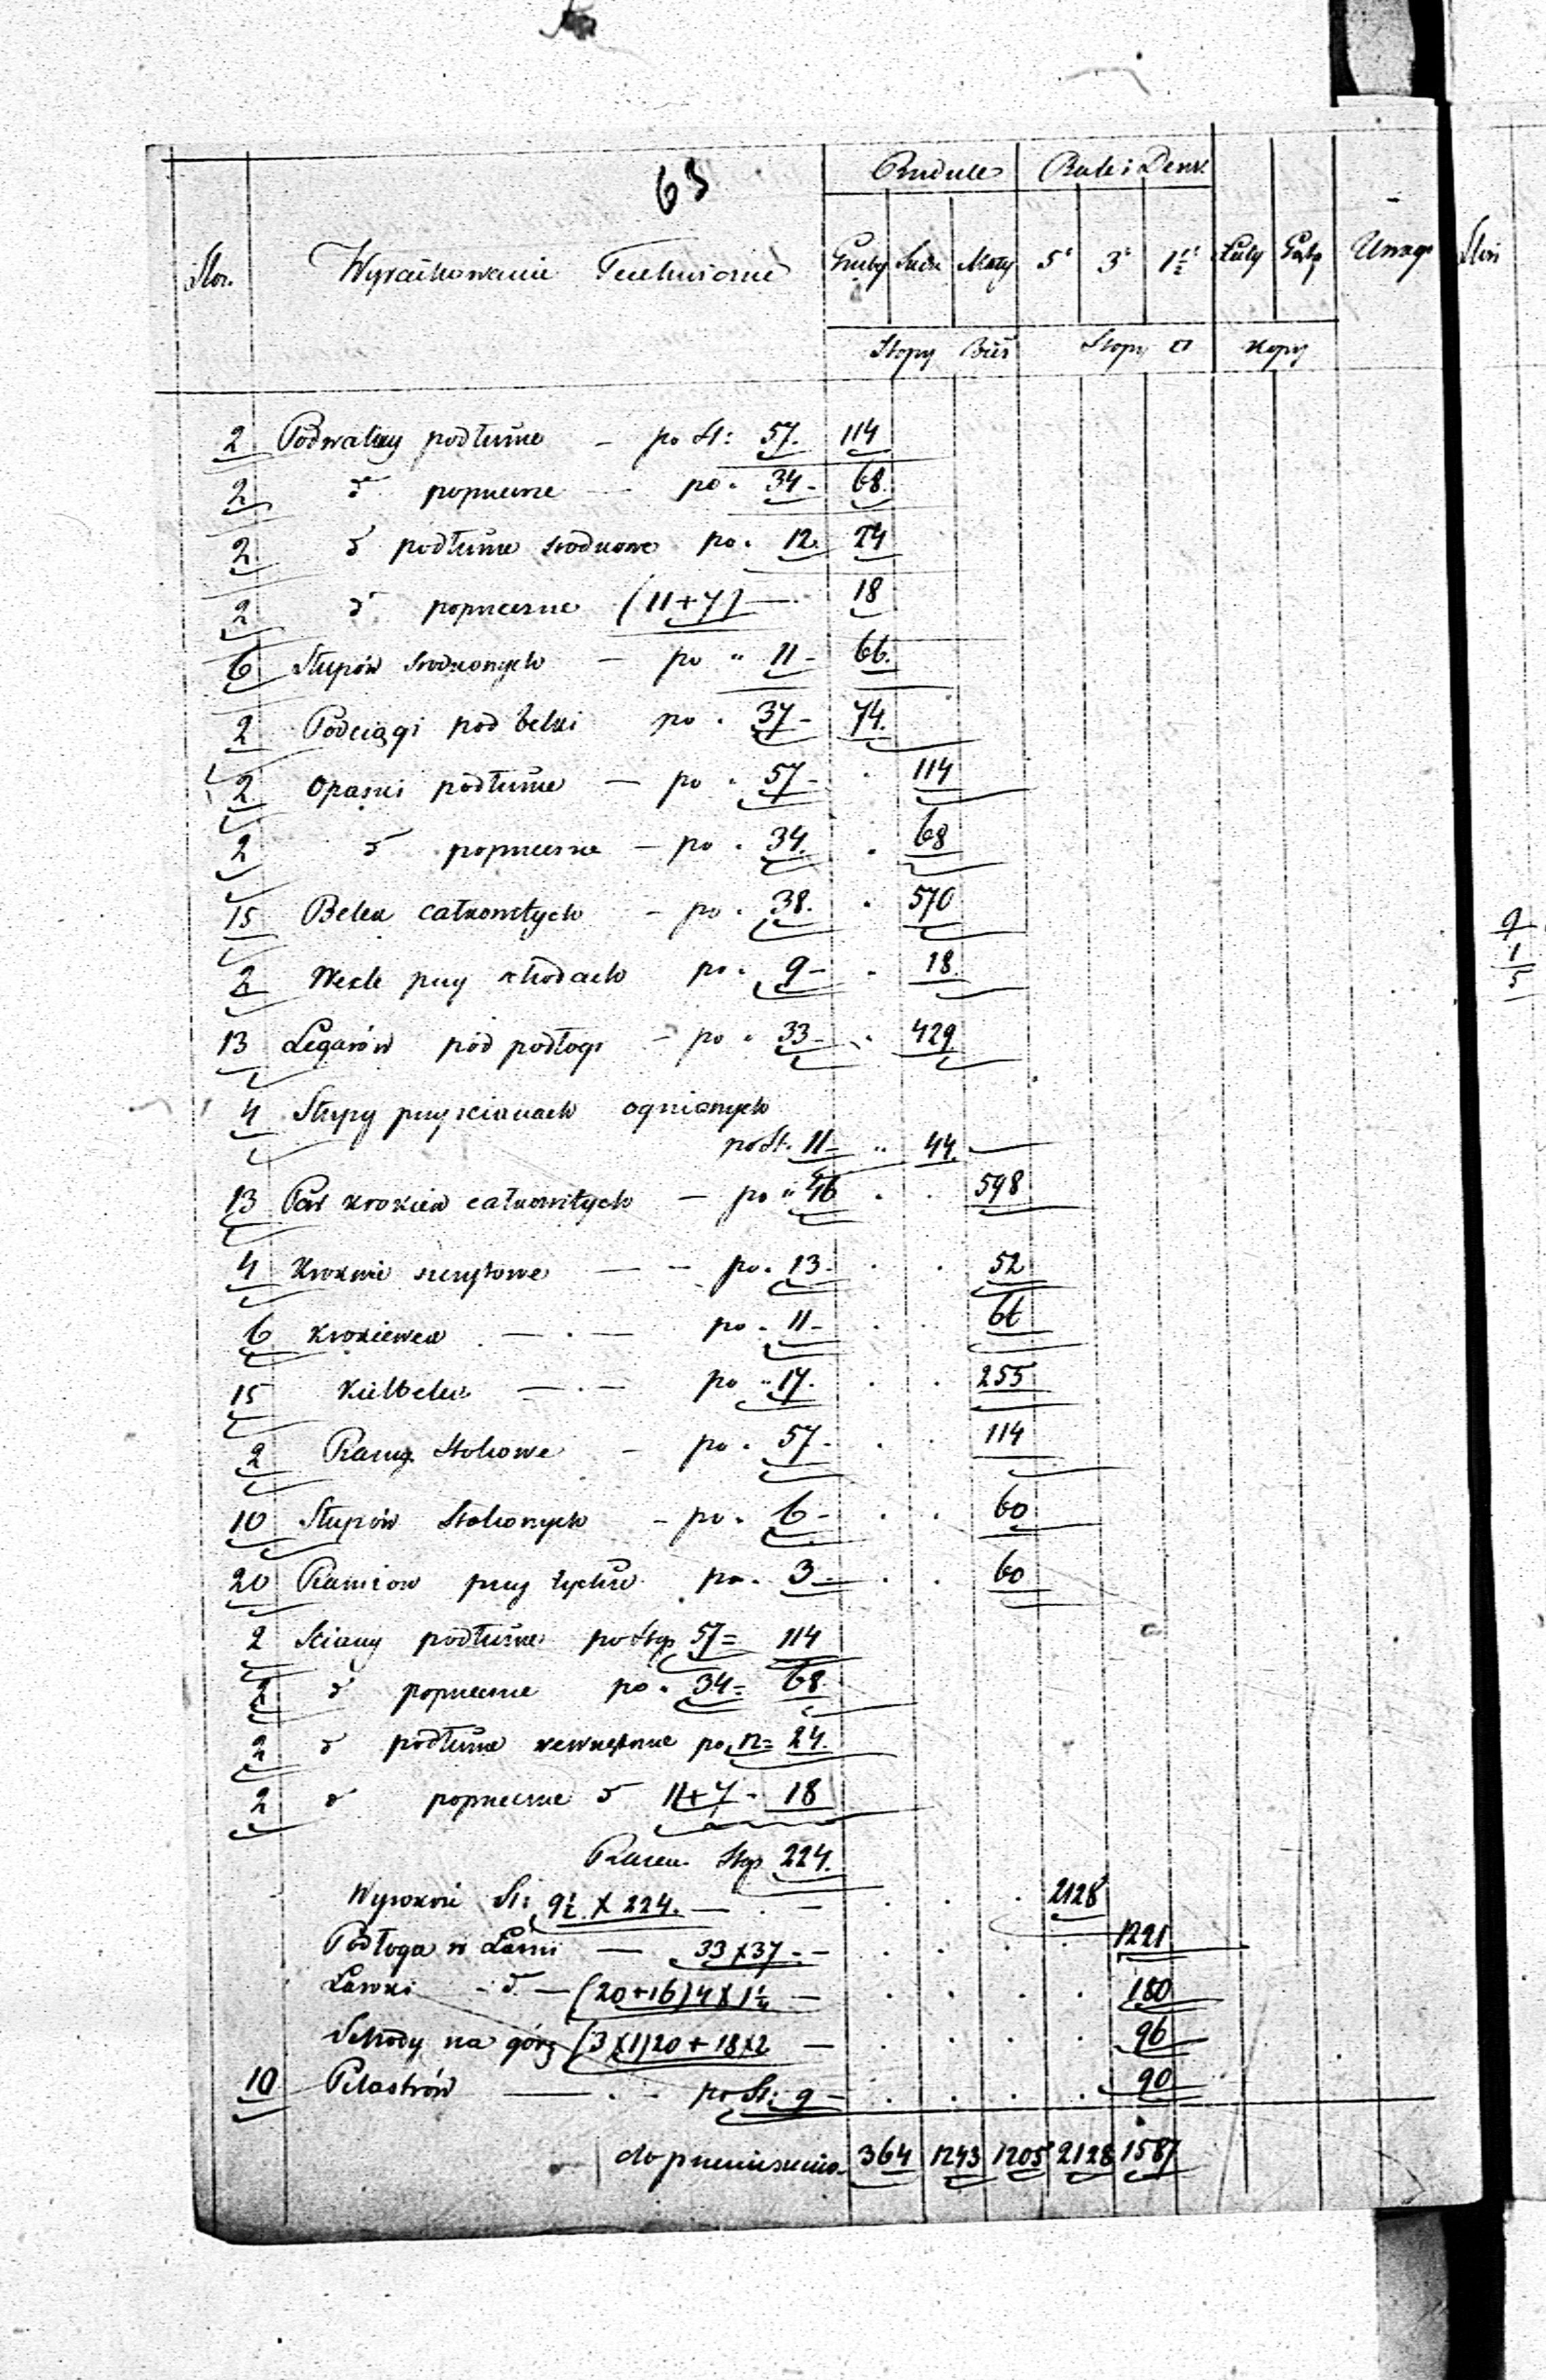 63
Budulec Bale i Derw.
Stos. Wyrachowanie Techniczne Gruby Śred. Mały 5" 3" 1½" Łaty Gąty Uwagi
Stopy Bież Stopy □ Kopy
2 Podwaliny podłużne – po St: 57. 114
2 dº poprzeczne – po " 34 – 68.
2 dº podłużne srodkowe po " 12. 24
2 dº poprzeczne (11+7) – 18
6 Słupów srodkowych – po " 11 – 66.
2 Podciągi pod belki po " 37 – 74.
2 Opaski podłużne – po " 57 – 114
2 dº poprzeczne – po " 34. 68
15 Belek całkowitych – po " 38. 570
2 Wexle przy schodach po " 9 – 18.
13 Legarów pod podłogi – po " 33 – 429.
4 Słupy przy scianach ogniowych
po St. 11 – " 44. –
13 Par krokiew całkowitych – po " 46 598
4 Krokwie szczytowe – – po " 13 – 52
6 Krokiewek – . – po " 11 – 66
15 Kielbelki – . – po " 17. 255
2 Ramy Stolcowe – po " 57 – 114
10 Słupów Stolcowych – po " 6 – 60
20 Ramion przy tychże po " 3 – 60
2 Sciany podłużne po Stop 57 = 114
2 dº poprzeczne po " 34 = 68.
2 dº podłużne wewnętrzne po " 12 = 24.
2 dº poprzeczne dº 11+7 " 18
Razem Stop 224.
Wysokość St: 9½ X 224. – . – 2128
Podłoga w – 33 X 37 – – 1221
Ławki – dº – (20+16)4 X 1¼ – 180
Schody na górę (3 X 1)20 + 18 X 2 – 96
10 Pilastrów – . – po St: 9 – 90
do przeniesienia 364 1243 1205 2128 1587